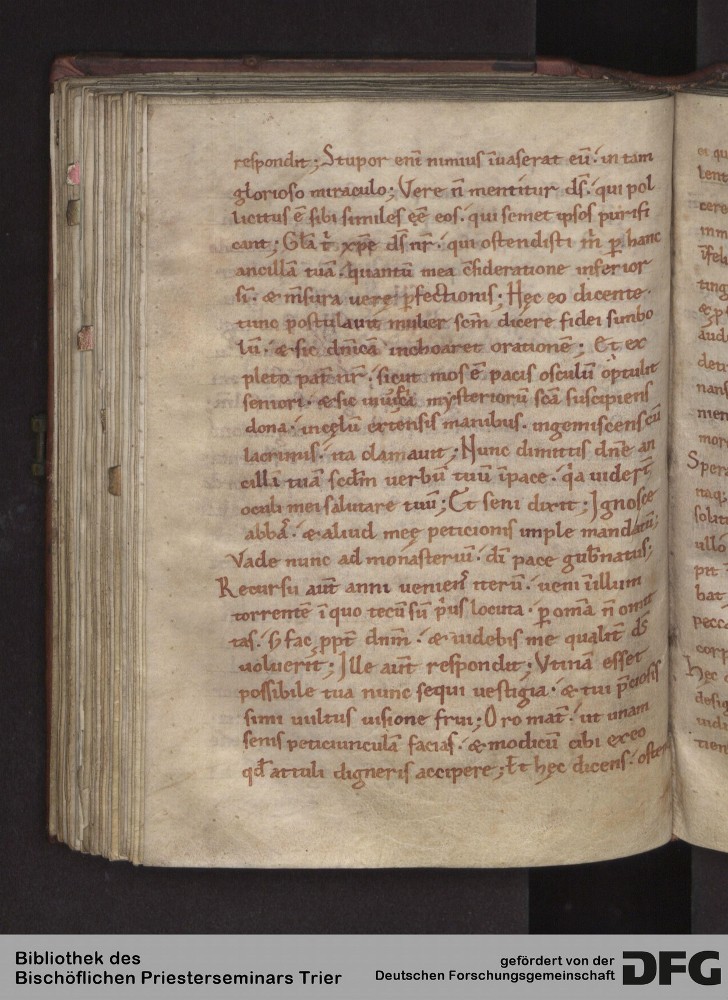 respondit; Stupor eni̅ nimius i̅uaserat eu̅. in tam
glorioso miraculo; Vere n̅ mentitur d̅s. qui pol
licitus e̅ sibi similes e̅e̅ eos. qui semet ipsos purifi
cant; Gl̅a t̅ xp̅e d̅s n̅r. qui ostendisti m̅ p̲ hanc
ancilla̅ tua̅. quantu̅ mea c̅sideratione inferior
si̅. & m̅sura uere p̲fectionis; Hęc eo dicente.
tunc postulauit mulier sc̅m dicere fidei simbo
lu̅. & sic dn̅ica̅ inchoaret oratione̅; Et ex
pleto pat̅ n̅r. sicut mos e̅ pacis osculu̅ optulit
seniori. & sic mysterioru̅ sc̅a suscipiens
dona. in cęlu̅ extensis manibus. ingemiscens cu̅
lacrimis. ita clamauit; Nunc dimittis dn̅e an
cilla̅ tua̅ scd̅m uerbu̅ tuu̅ i̅pace. q̅a uider̅t
oculi mei salutare tuu̅; Et seni dixit; Ignosce
abba. & aliud meę peticionis imple mandatu̅;
Vade nunc ad monasteriu̅. d̅i pace gub̅natus;
Recursu aut̅ anni uenient̅ iteru̅. ueni i̅illum
torrente̅ i̅quo tecu̅ su̅ p̅us locuta. p̲ om̅a n̅ omit
tas. s̅ fac ppt̅ dnm̅. & uidebis me qualit̅ d̅s
uoluerit; Ille aut̅ respondit; Vtina̅ esset
possibile tua nunc sequi uestigia. & tui p̅ciosis
simi uultus uisione frui; Oro mat̅. ut unam
senis peticiuncula̅ facias. & modicu̅ cibi ex eo
qd̅ attuli digneris accipere; Et hęc dicens. osten
Bibliothek des
Bischöflichen Priesterseminars Trier
gefördert von der
Deutschen Forschungsgemeinschaft
DFG